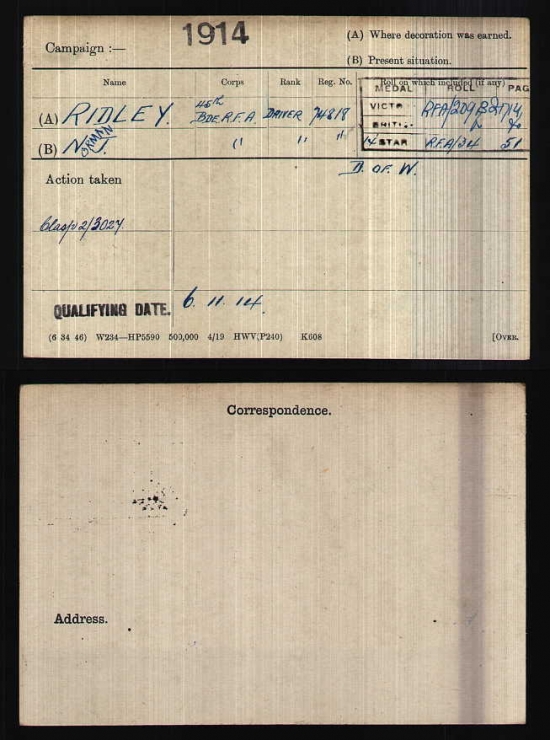 Campaign :— 1914
(A) Where decoration was earned.
(B) Present situation.
Name Corps Rank Reg. No. Roll on which included (if any)
MEDAL ROLL PAG
(A) RIDLEY. 45th BDE.R.F.A DRIVER 74818
VICTR RFA/209B
BRITI
(B) N.J. " " "
14 STAR RFA/24 51
D. OF. W.
Action taken
Clasp v2/3027.
QUALIFYING DATE. 6. 11. 14.
(6 34 46) W234—HP5590 500,000 4/19 HWV(P240) K608 [OVER.
Correspondence.
Address.